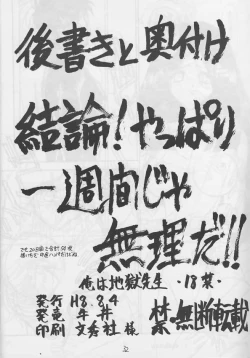 後書きと奥付け
結論!やっぱり
一週間じゃ
無理だ!!
俺は地獄先生 ・18禁・
発行 H8.8.4
発売 牛丼
印刷 文秀社 様
禁・無断転載